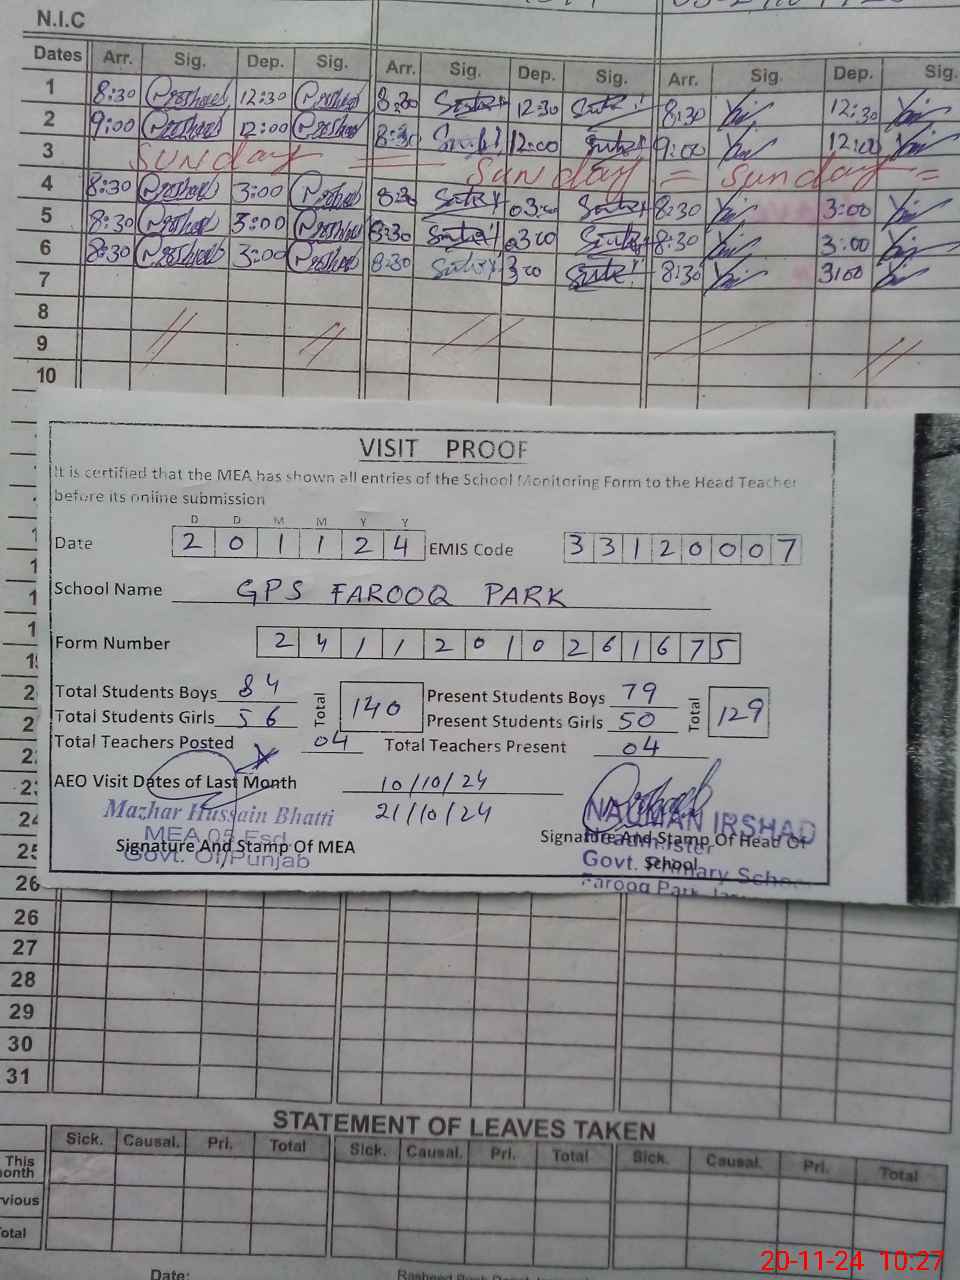 N.I.C
Dates Arr. Sig. Dep. Sig. Arr. Sig. Dep. Sig. Arr. Sig. Dep. Sig.
1 8:30 12:30 8:30 12:30 8:30 12:30
2 9:00 12:00 8:30 12:00 9:00 12:00
3 Sunday = Sunday = Sunday =
4 8:30 3:00 8:30 03:00 8:30 3:00
5 8:30 3:00 8:30 03:00 8:30 3:00
6 8:30 3:00 8:30 3:00 8:30 3:00
7
8
9
10
VISIT PROOF
It is certified that the MEA has shown all entries of the School Monitoring Form to the Head Teacher
before its online submission
D D M M Y Y
Date 2 0 1 1 2 4 EMIS Code 3 3 1 2 0 0 0 7
School Name GPS FAROOQ PARK
Form Number 2 4 1 1 2 0 1 0 2 6 1 6 7 5
Total Students Boys 84 Total 140 Present Students Boys 79 Total 129
Total Students Girls 56 Present Students Girls 50
Total Teachers Posted 04 Total Teachers Present 04
AEO Visit Dates of Last Month 10/10/24
21/10/24
Mazhar Hussain Bhatti
MEA 05 Fsd
Govt. Of Punjab
Signature And Stamp Of MEA
NAUMAN IRSHAD
Signature And Stamp Of Head Of
School
Govt. Primary School
Farooq Park
24
25
26
26
27
28
29
30
31
STATEMENT OF LEAVES TAKEN
Sick. Causal. Pri. Total Sick. Causal. Pri. Total Sick. Causal. Pri. Total
This
onth
vious
otal
Date:
20-11-24 10:27